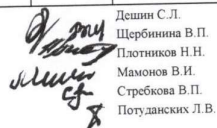 Дешин С.Л.
Щербинина В.П.
Плотников Н.Н.
Мамонов В.И.
Стребкова В.П.
Потуданских Л.В.